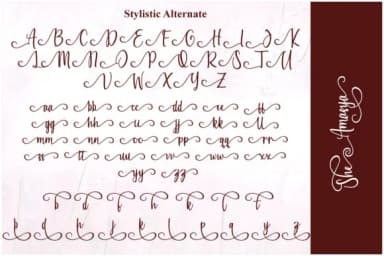 Stylistic Alternate
A B C D E F G H I J K
L M N O P Q R S T U
V W X Y Z
aa bb cc dd ee ff
gg hh ii jj kk ll
mm nn oo pp qq rr
ss tt uu vv ww xx
yy zz
b d f h k l t
b h j k l p q y z
The Amaeya